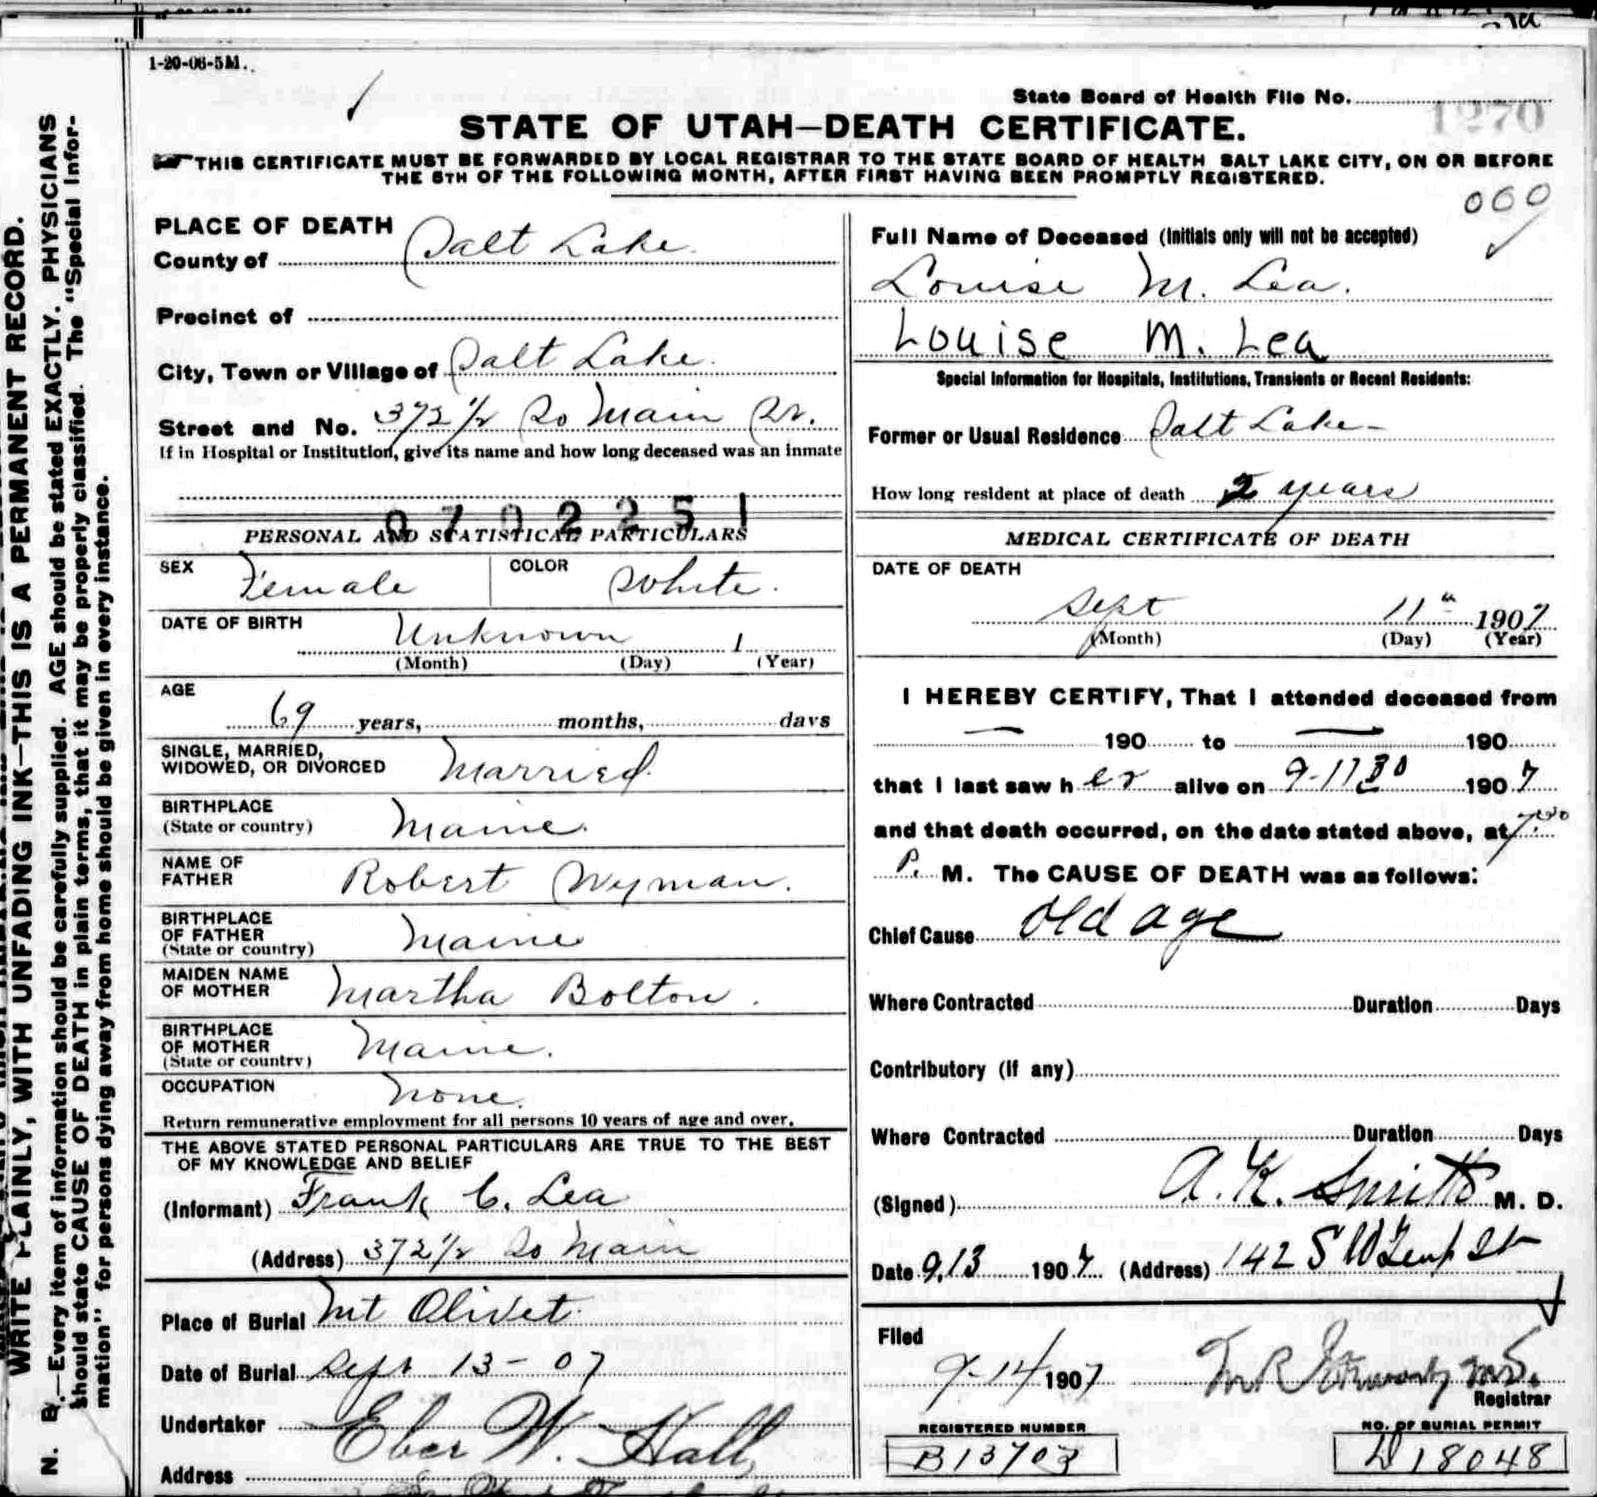 1-20-06-5M.
State Board of Health File No.
1270
STATE OF UTAH—DEATH CERTIFICATE.
THIS CERTIFICATE MUST BE FORWARDED BY LOCAL REGISTRAR TO THE STATE BOARD OF HEALTH SALT LAKE CITY, ON OR BEFORE
THE 5TH OF THE FOLLOWING MONTH, AFTER FIRST HAVING BEEN PROMPTLY REGISTERED.
060
WRITE PLAINLY, WITH UNFADING INK—THIS IS A PERMANENT RECORD.
N. B.—Every item of information should be carefully supplied. AGE should be stated EXACTLY. PHYSICIANS
should state CAUSE OF DEATH in plain terms, that it may be properly classified. The "Special Infor-
mation" for persons dying away from home should be given in every instance.
PLACE OF DEATH
County of Salt Lake
Precinct of
City, Town or Village of Salt Lake
Street and No. 372 1/2 So Main St.
If in Hospital or Institution, give its name and how long deceased was an inmate
0702251
PERSONAL AND STATISTICAL PARTICULARS
SEX Female COLOR White.
DATE OF BIRTH Unknown 1
(Month) (Day) (Year)
AGE
69 years, months, days
SINGLE, MARRIED,
WIDOWED, OR DIVORCED Married
BIRTHPLACE
(State or country) Maine.
NAME OF
FATHER Robert Wyman.
BIRTHPLACE
OF FATHER
(State or country) Maine
MAIDEN NAME
OF MOTHER Martha Bolton.
BIRTHPLACE
OF MOTHER
(State or country) Maine.
OCCUPATION none.
Return remunerative employment for all persons 10 years of age and over.
THE ABOVE STATED PERSONAL PARTICULARS ARE TRUE TO THE BEST
OF MY KNOWLEDGE AND BELIEF
(Informant) Frank C. Lea
(Address) 372 1/2 So Main
Place of Burial Mt Olivet
Date of Burial Sept 13-07
Undertaker Eber W. Hall
Address
Full Name of Deceased (Initials only will not be accepted)
Louise M. Lea.
Louise M. Lea
Special Information for Hospitals, Institutions, Transients or Recent Residents:
Former or Usual Residence Salt Lake
How long resident at place of death 2 years
MEDICAL CERTIFICATE OF DEATH
DATE OF DEATH
Sept 11" 1907
(Month) (Day) (Year)
I HEREBY CERTIFY, That I attended deceased from
— 190 to — 190
that I last saw her alive on 9-11 1907
and that death occurred, on the date stated above, at 7:00
P. M. The CAUSE OF DEATH was as follows:
Chief Cause old age
Where Contracted Duration Days
Contributory (If any)
Where Contracted Duration Days
(Signed) A. K. Smith M. D.
Date 9.13 1907 (Address) 142 S W Temp St
Filed
9-14 1907
Registrar
REGISTERED NUMBER
B13703
NO. OF BURIAL PERMIT
D18048